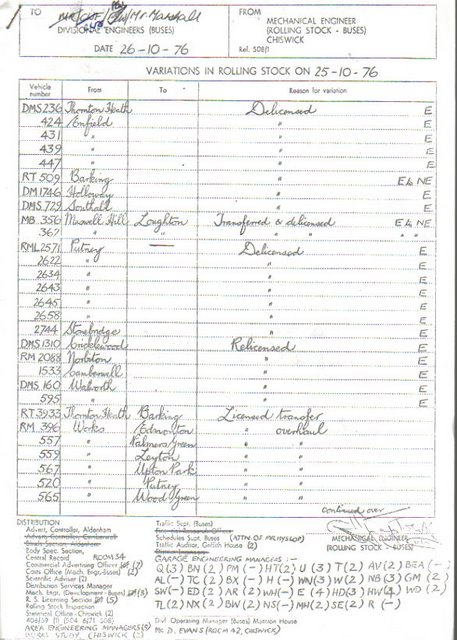 TO
Mr Marshall
DIVISIONAL ENGINEERS (BUSES)
DATE 26-10-76
FROM
MECHANICAL ENGINEER
(ROLLING STOCK - BUSES)
CHISWICK
Ref. 508/1
VARIATIONS IN ROLLING STOCK ON 25-10-76
Vehicle number From To Reason for variation
DMS 236 Thornton Heath Delicensed E
424 Enfield " E
431 " " E
439 " " E
447 " " E
RT 509 Barking " E & NE
DM 1746 Holloway " E
DMS 729 Southall " E
MB 356 Muswell Hill Loughton Transferred & delicensed E & NE
367 " " " " " "
RML 2571 Putney — Delicensed E
2622 " " E
2634 " " E
2643 " " E
2645 " " E
2658 " " E
2744 Stonebridge " E
DMS 1310 Cricklewood Relicensed E
RM 2088 Norbiton " E
1533 Camberwell " E
DMS 160 Walworth " E
595 " " E
RT 3933 Thornton Heath Barking Licensed transfer
RM 396 Works Edmonton " overhaul
557 " Palmers Green " "
559 " Leyton " "
567 " Upton Park " "
520 " Putney " "
565 " Wood Green " "
continued over
MECHANICAL ENGINEER
(ROLLING STOCK - BUSES)
DISTRIBUTION
Advert. Controller, Aldenham
Body Spec. Section,
Central Record ROOM 34
Commercial Advertising Officer (7)
Costs Office (Mech. Engr.-Buses) (2)
Scientific Adviser (2)
Distribution Services Manager
Mech. Engr. (Development - Buses) (3)
R. S. Licensing Section (5)
Rolling Stock Inspection
Statistical Office - Chiswick (2)
AREA ENGINEERING MANAGERS (8)
WORKS STUDY, CHISWICK (2)
Traffic Supt. (Buses)
Schedules Supt. (Buses)
Traffic Auditor, Griffith House (2)
GARAGE ENGINEERING MANAGERS:-
Q (3) BN (2) PM (-) HT (2) U (3) T (2) AV (2) BEA (-)
AL (-) TC (2) BX (-) H (-) WN (3) W (2) NB (3) GM (2)
SW (-) ED (2) AR (2) WH (-) E (4) HD (3) HW (4) WD (2)
TL (2) NX (2) BW (2) NS (-) MH (2) SE (2) R (-)
Divl Operating Manager (Buses) Mansion House
Mr D. EVANS (ROOM 42, CHISWICK)